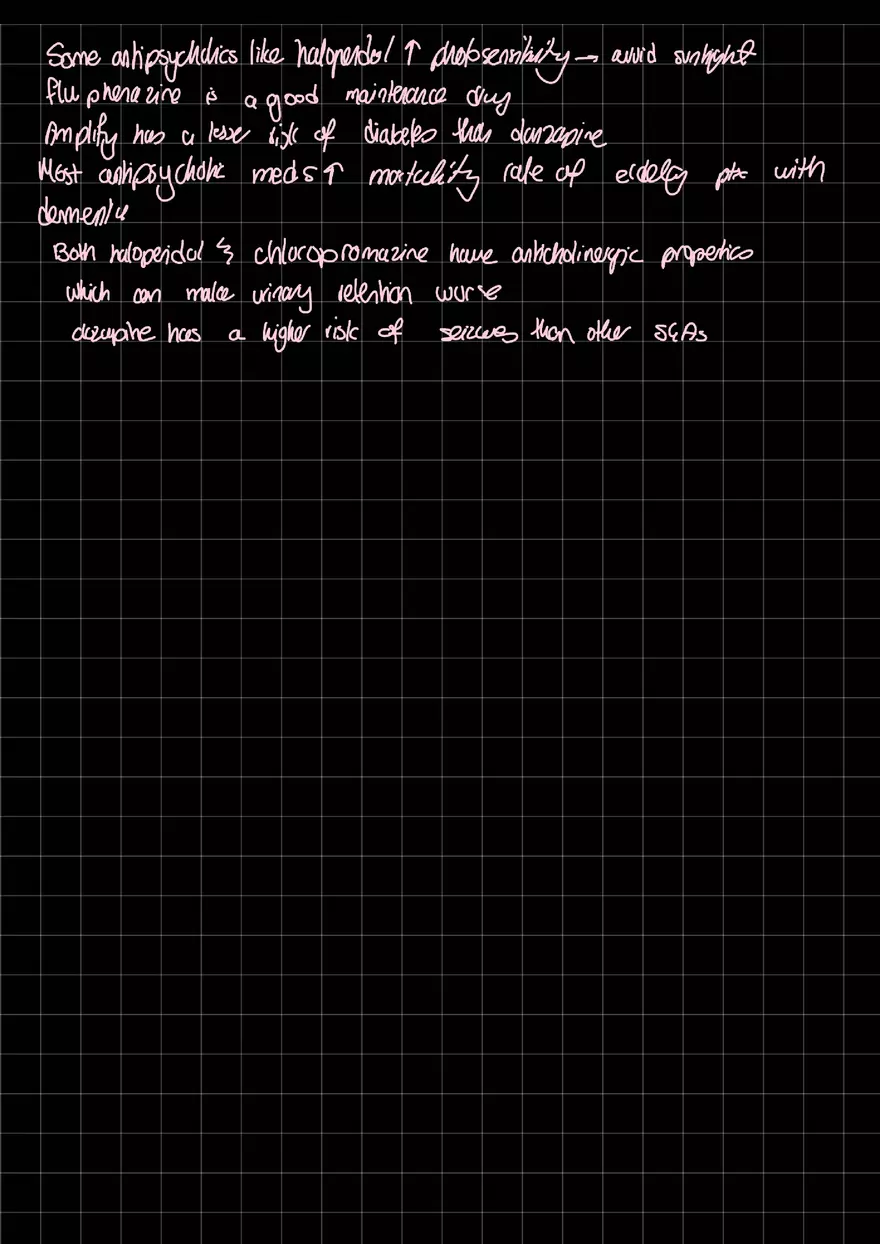 Some antipsychotics like haloperidol ↑ photosensitivity → avoid sunlight
fluphenazine is a good maintenance drug
Amplify has a lesser risk of diabetes than olanzapine
Most antipsychotic meds ↑ mortality rate of elderly pts with
dementia
Both haloperidol & chloropromazine have anticholinergic properties
which can make urinary retention worse
clozapine has a higher risk of seizures than other SGAs